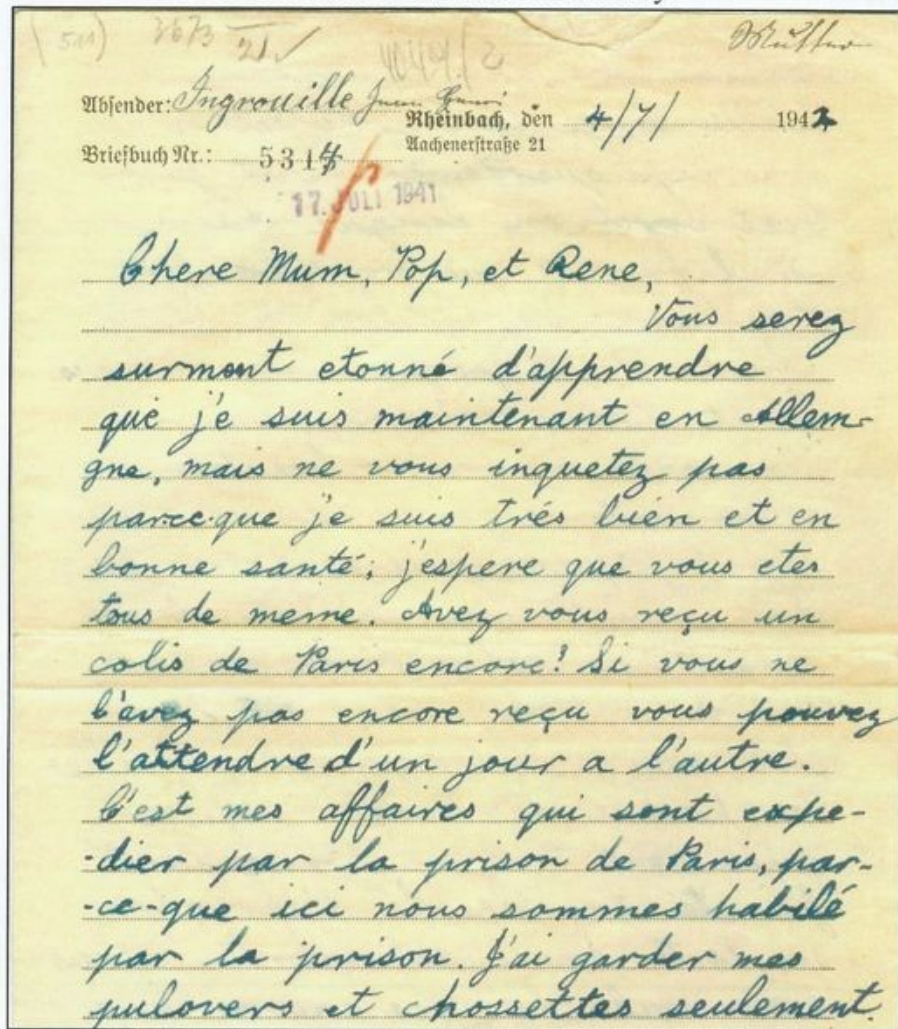 (511) 3673
21
Mutter
Absender: Ingrouille Jean Henri
Rheinbach, den 4/7/ 1942
Aachenerstraße 21
Briefbuch Nr.: 5314
17. JULI 1941
Chere Mum, Pop, et Rene,
Vous serez
surment etonné d'apprendre
que je suis maintenant en Allem-
gne, mais ne vous inquetez pas
parce-que je suis trés bien et en
bonne santé; j'espere que vous etes
tous de meme. Avez vous reçu un
colis de Paris encore? Si vous ne
l'avez pas encore reçu vous pouvez
l'attendre d'un jour a l'autre.
C'est mes affaires qui sont expe-
-dier par la prison de Paris, par-
-ce-que ici nous sommes habilé
par la prison. J'ai garder mes
pulovers et chossettes seulement.